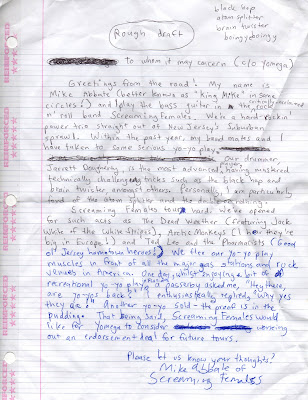 black hop
atom splitter
brain twister
boingy boingy
Rough draft
to whom it may concern (c/o yomega)
Greetings from the road! My name is
Mike Abbate (better known as "King Mike" in some
circles!) and I play the bass guitar in the rock
n' roll band Screaming Females. We're a hard-rockin'
power trio straight out of New Jersey's suburban
sprawl. Within the past year, my band mates and I
have taken to some serious yo-yo play.
Our drummer,
Jarrett Dougherty, is the most advanced, having mastered
technically challenging tricks such as the black hop and
brain twister, amongst others. Personally, I am particularly
fond of the atom splitter and the double
Screaming Females tours hard. We've opened
for such acts as The Dead Weather (featuring Jack
White of the White Stripes), Arctic Monkeys (I hear they're
big in Europe!) and Ted Leo and the Pharmacists (
of Jersey hometown heroes!) We flex our yo-yo play
muscles in front of all the major gas stations and rock
venues in America. One day, whilst enjoying a bit of
recreational yo-yo play, a passerby asked me, "Hey there,
are yo-yos back?" I enthusiastically replied, "Why yes
they are!" Another yo-yo sold - the proof is in the
pudding. That being said, Screaming Females would
like for Yomega to consider working
out an endorsement deal for future tours.
Please let us know your thoughts!
Mike Abbate of
Screaming Females